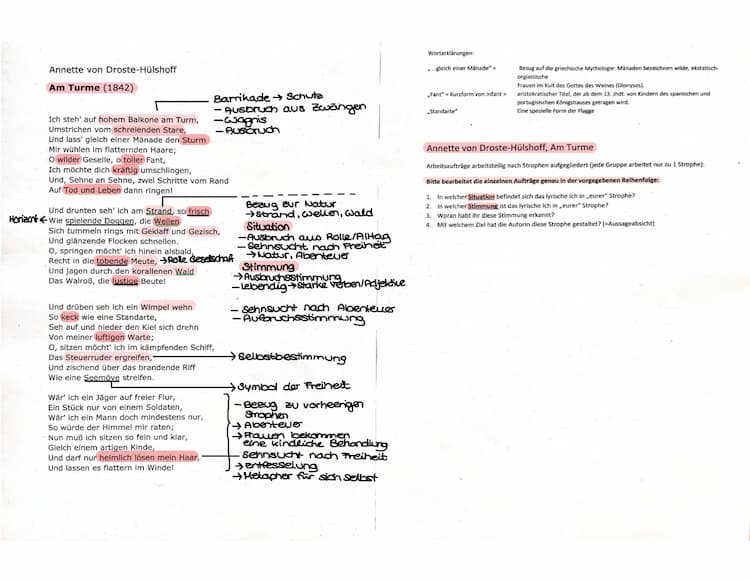 Annette von Droste-Hülshoff
Am Turme (1842)
Barrikade → Schutz
- Ausbruch aus Zwängen
- Wagnis
- Ausbruch
Ich steh' auf hohem Balkone am Turm,
Umstrichen vom schreienden Stare,
Und lass' gleich einer Mänade den Sturm
Mir wühlen im flatternden Haare;
O wilder Geselle, o toller Fant,
Ich möchte dich kräftig umschlingen,
Und, Sehne an Sehne, zwei Schritte vom Rand
Auf Tod und Leben dann ringen!
Bezug zur Natur
→ Strand, Wellen, Wald
Situation
- Ausbruch aus Rolle/Alltag
- Sehnsucht nach Freiheit
→ Natur, Abenteuer
Stimmung
→ Ausbruchsstimmung
- Lebendig → starke Verben/Adjektive
Und drunten seh' ich am Strand, so frisch
Wie spielende Doggen, die Wellen
Sich tummeln rings mit Geklaff und Gezisch,
Und glänzende Flocken schnellen.
O, springen möcht' ich hinein alsbald,
Recht in die tobende Meute, → Rolle Gesellschaft
Und jagen durch den korallenen Wald
Das Walroß, die lustige Beute!
Und drüben seh ich ein Wimpel wehn
So keck wie eine Standarte,
Seh auf und nieder den Kiel sich drehn
Von meiner luftigen Warte;
O, sitzen möcht' ich im kämpfenden Schiff,
Das Steuerruder ergreifen,
Und zischend über das brandende Riff
Wie eine Seemöve streifen.
- Sehnsucht nach Abenteuer
- Aufbruchsstimmung
→ Selbstbestimmung
→ Symbol der Freiheit
Wär' ich ein Jäger auf freier Flur,
Ein Stück nur von einem Soldaten,
Wär' ich ein Mann doch mindestens nur,
So würde der Himmel mir raten;
Nun muß ich sitzen so fein und klar,
Gleich einem artigen Kinde,
Und darf nur heimlich lösen mein Haar,
Und lassen es flattern im Winde!
- Bezug zu vorherigen
Strophen
→ Abenteuer
→ Frauen bekommen
eine kindliche Behandlung
- Sehnsucht nach Freiheit
→ entfesselung
→ Metapher für sich selbst
Worterklärungen:
„...gleich einer Mänade" = Bezug auf die griechische Mythologie: Mänaden bezeichnen wilde, ekstatisch-
orgiestische
Frauen im Kult des Gottes des Weines (Dionysos).
„Fant" = Kurzform von Infant = aristokratischer Titel, der ab dem 13. Jhdt. von Kindern des spanischen und
portugisischen Königshauses getragen wird.
„Standarte" Eine spezielle Form der Flagge
Annette von Droste-Hülshoff, Am Turme
Arbeitsaufträge arbeitsteilig nach Strophen aufgegliedert (jede Gruppe arbeitet nur zu 1 Strophe):
Bitte bearbeitet die einzelnen Aufträge genau in der vorgegebenen Reihenfolge:
1. In welcher Situation befindet sich das lyrische Ich in „eurer" Strophe?
2. In welcher Stimmung ist das lyrische Ich in „eurer" Strophe?
3. Woran habt ihr diese Stimmung erkannt?
4. Mit welchem Ziel hat die Autorin diese Strophe gestaltet? (=Aussageabsicht)